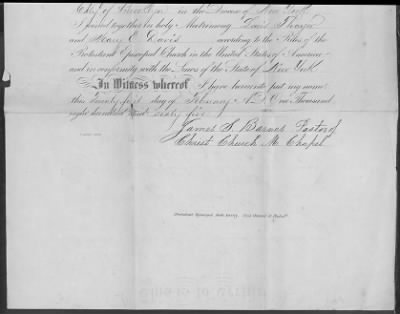 City of Brooklyn in the Diocese of New York
I joined together in holy Matrimony
and Mary E Davis according to the Rites of the
Protestant Episcopal Church in the United States of America
and in conformity with the Laws of the State of New York
In Witness whereof I have hereunto put my name
this Twenty first day of February A.D. One Thousand
eight hundred and sixty five
James S. Barnes Pastor of
Christ Church M. Chapel
Protestant Episcopal